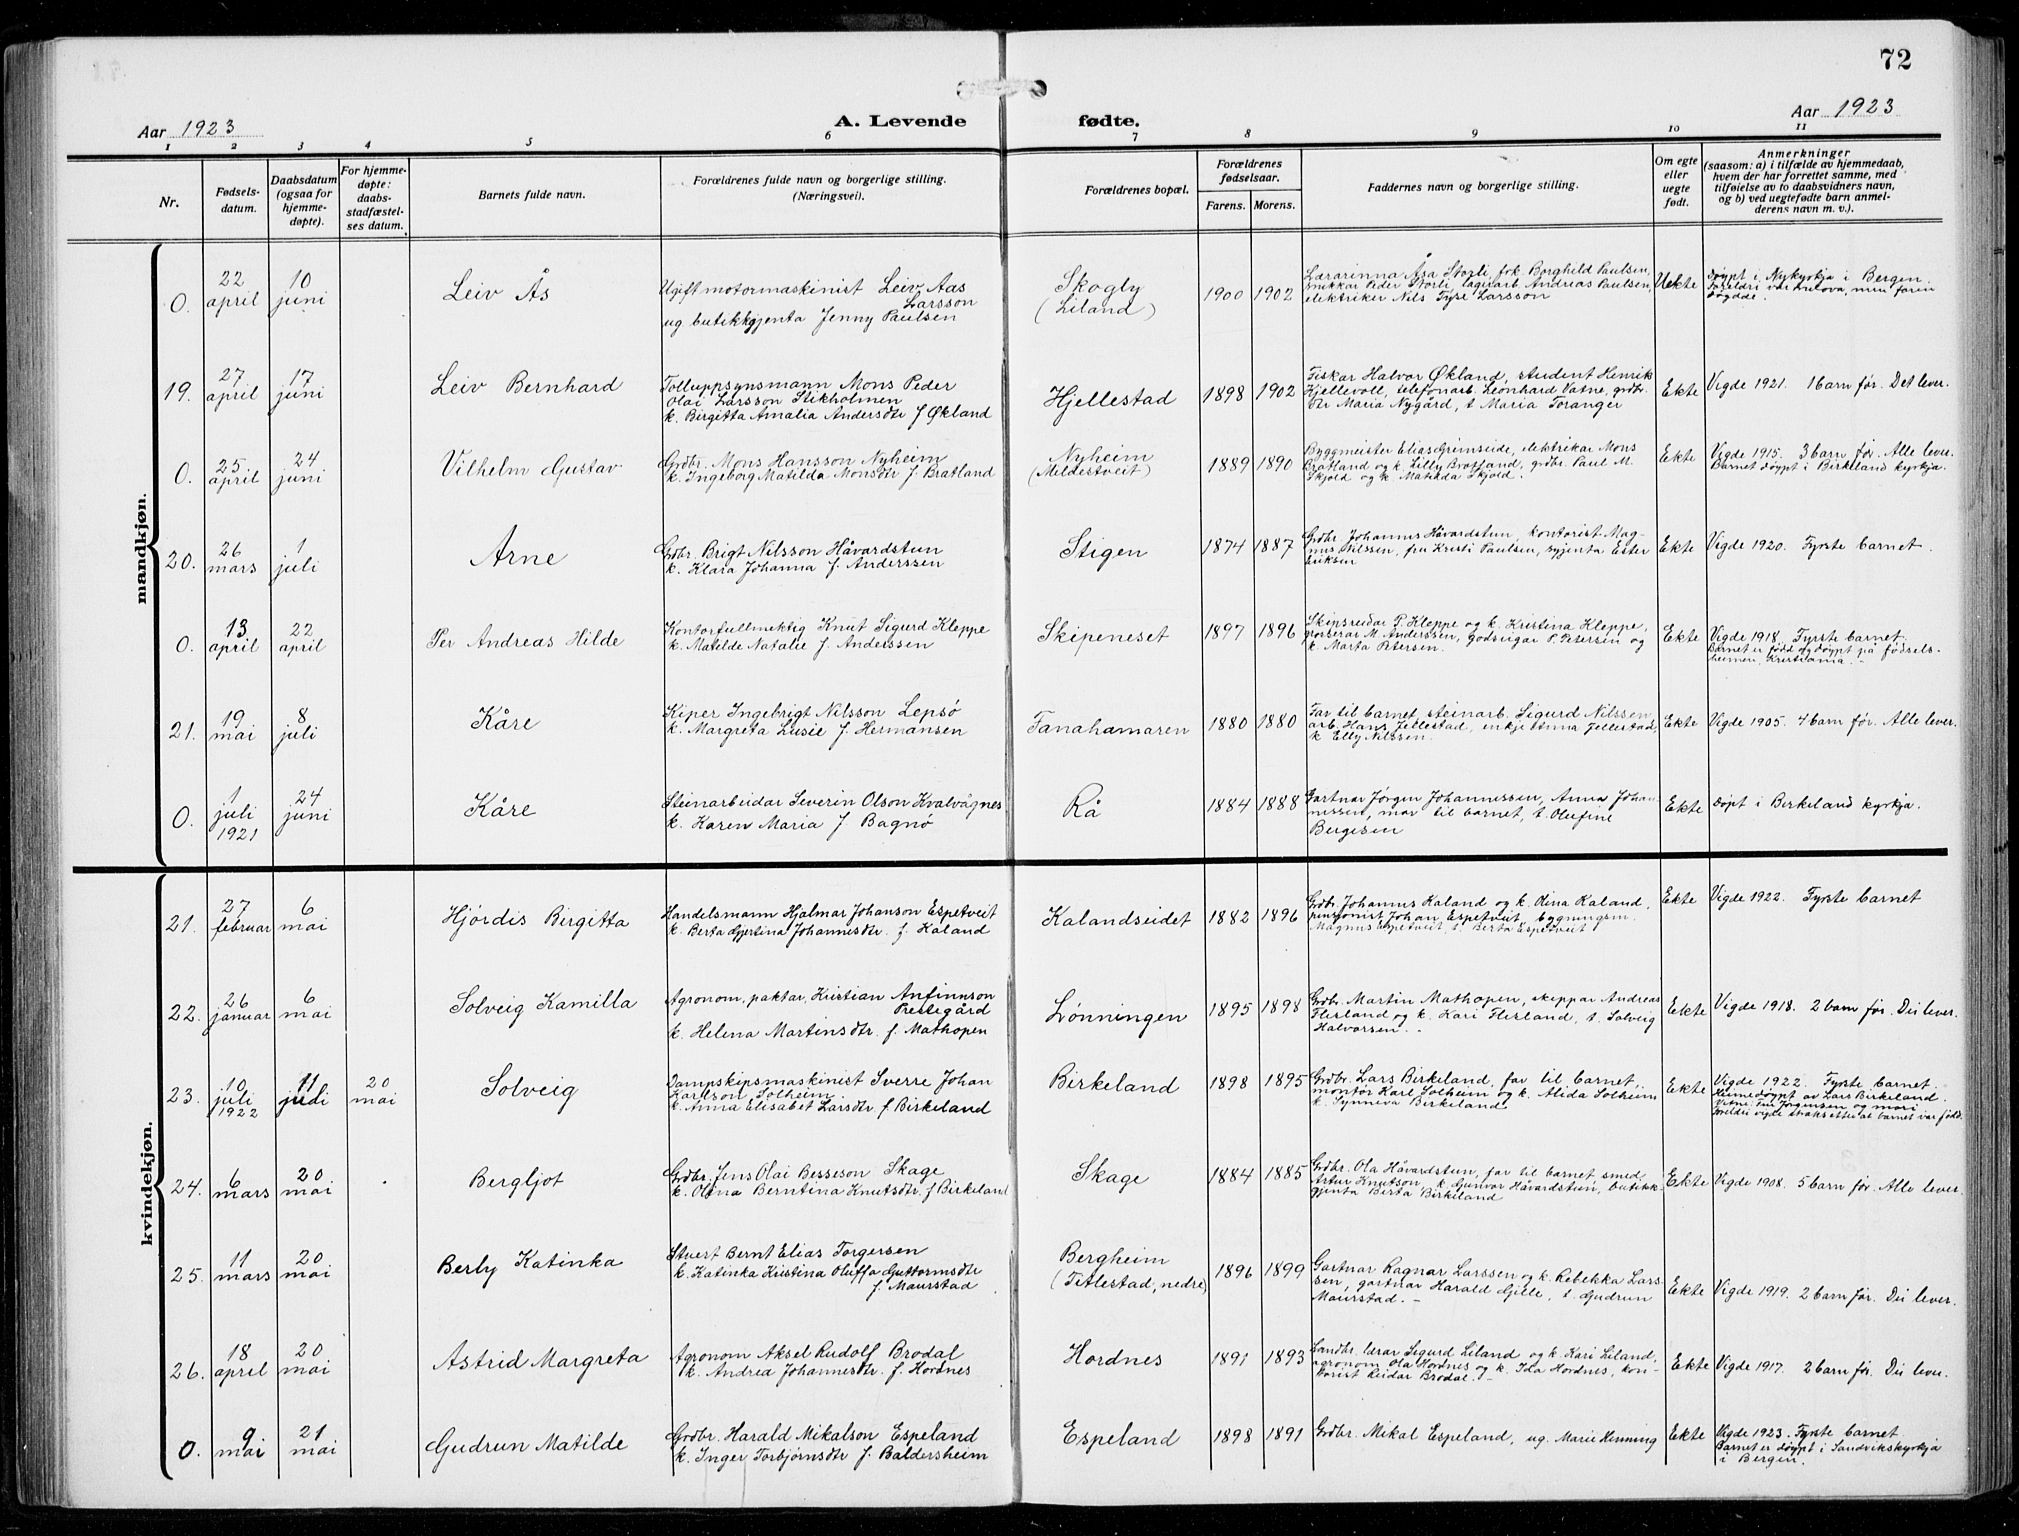 72
Aar 1923
A. Levende
fødte.
Aar 1923
1 2 3 4 5 6 7 8 9 10 11
Nr.
Fødsels-
datum.
Daabsdatum
(ogsaa for
hjemme-
døpte).
For hjemme-
døpte:
daabs-
stadfæstel-
ses datum.
Barnets fulde navn.
Forældrenes fulde navn og borgerlige stilling.
(Næringsvei).
Forældrenes bopæl.
Forældrenes
fødselsaar.
Farens. Morens.
Faddernes navn og borgerlige stilling.
Om egte
eller
uegte
født.
Anmerkninger
(saasom: a) i tilfælde av hjemmedaab,
hvem der har forrettet samme, med
tilføielse av to daabsvidners navn,
og b) ved uegtefødte barn anmel-
derens navn m. v.).
mandkjøn.
0.
22
april
10
juni
Leiv Ås
Ugift motormaskinist Leiv Aas
Larsson
ug butikkgjenta Jenny Paulsen
Skogly
(Liland)
1900 1902
Lærarinna Åsa Storli, frk. Borghild Paulsen,
snikkar Peder Storli, lagerarb. Andreas Paulsen,
elektriker Nils Fyse Larsson
Uekte
Døypt i Nykyrkja i Bergen.
Foreldri var trulova, men faren
døydde.
19.
27
april
17
juni
Leiv Bernhard
Tolluppsynsmann Mons Peder
Olai Larsson Stikholmen
k. Birgitta Amalia Andersdtr f. Økland
Hjellestad
1898 1902
Fiskar Halvor Økland, student Henrik
Kjellevoll, telefonarb. Leonhard Vatne, grdbr.
dtr Maria Nygård, t. Maria Toranger
Ekte
Vigde 1921. 1 barn før. Det lever.
0.
25
april
24
juni
Vilhelm Gustav
Grdbr. Mons Hansson Nyheim
k. Ingeborg Matilda Monsdtr f. Bratland
Nyheim
(Mildestveit)
1889 1890
Byggmeister Elias Grimseide, elektrikar Mons
Bratland og k. Lilly Bratland, grdbr. Paul M.
Skjold og k. Matilda Skjold.
Ekte
Vigde 1915. 3 barn før. Alle lever.
Barnet døypt i Birkeland kyrkja.
20.
26
mars
1
juli
Arne
Grdbr. Brigt Nilsson Håvardstun
k. Klara Johanna f. Anderssen
Stigen
1874 1887
Grdbr. Johannes Håvardstun, kontorist Mag-
nus Nilssen, fru Kristi Paulsen, syjenta Ester
Eriksen
Ekte
Vigde 1920. Fyrste barnet.
0.
13
april
22
april
Per Andreas Hilde
Kontorfullmektig Knut Sigurd Kleppe
k. Matilde Natalie f. Anderssen
Skipeneset
1897 1896
Skipsreidar P. Kleppe og k. Kristina Kleppe,
grosserar M. Anderssen, godseigar P. Petersen og
k. Marta Petersen.
Ekte
Vigde 1918. Fyrste barnet.
Barnet er født og døypt på fødsels-
heimen, Kristiania. -
21.
19
mai
8
juli
Kåre
Kiper Ingebrigt Nilsson Lepsö
k. Margreta Lusie f. Hermansen
Fanahamaren
1880 1880
Far til barnet, steinarb. Sigurd Nilssen
arb. Hans Titlestad, enkje Anna Titlestad,
k. Elly Nilssen.
Ekte
Vigde 1905. 4 barn før. Alle lever.
0.
1
juli
1921
24
juni
Kåre
Steinarbeidar Severin Olson Kvalvågnes
k. Karen Maria f. Bagnö
Rå
1884 1888
Gartnar Jörgen Johannessen, Anna Johan-
nessen, mor til barnet, t. Olufine
Bergesen
Ekte
Døpt i Birkeland kyrkja.
kvindekjøn.
21.
27
februar
6
mai
Hjördis Birgitta
Handelsmann Hjalmar Johanson Espetveit
k. Berta Gjertina Johannesdtr. f. Kaland
Kalandseidet
1882 1896
Grdbr. Johannes Kaland og k. Olina Kaland,
pensjonist Johan Espetveit, bygningsm.
Magnus Espetveit, t. Berta Espetveit
Ekte
Vigde 1922. Fyrste barnet
22.
26
januar
6
mai
Solveig Kamilla
Agronom, paktar, Kristian Anfinnson
Prestegård
k. Helena Martinsdtr. f. Mathopen
Lønningen
1895 1898
Grdbr. Martin Mathopen, skippar Andreas
Flesland og k. Kari Flesland, t. Solveig
Halvorsen. -
Ekte
Vigde 1918. 2 barn før. Dei lever.
23.
10
juli
1922
11
juli
20
mai
Solveig
Dampskipsmaskinist Sverre Johan
Karlson Solheim
k. Anna Elisabet Larsdtr f. Birkeland
Birkeland
1898 1895
Grdbr. Lars Birkeland, far til barnet,
montør Karl Solheim og k. Alida Solheim
k. Synneva Birkeland
Ekte
Vigde 1922. Fyrste barnet.
Heimedøypt av Lars Birkeland.
Vitne: Fru Jørgensen og mori
Foreldri vigde straks etter at barnet var född.
24.
6
mars
20
mai
Bergljot
Grdbr. Jens Olai Besseson Skage
k. Olina Berntina Knutsdtr. f. Birkeland
Skage
1884 1885
Grdbr. Ola Håvardstun, far til barnet, smed
Artur Knutson, k. Gunvor Håvardstun, butikk-
gjenta Berta Birkeland
Ekte
Vigde 1908. 5 barn før. Alle lever.
25.
11
mars
20
mai
Berly Katinka
Stuert Bernt Elias Torgersen
k. Katinka Kristina Oluffa Guttormsdtr
f. Maurstad
Bergheim
(Titlestad, nedre)
1896 1899
Gartnar Ragnar Larssen og k. Rebekka Lars-
sen, gartnar Harald Gjelle, t. Gudrun
Maurstad. -
Ekte
Vigde 1919. 2 barn før. Dei lever.
26.
18
april
20
mai
Astrid Margreta
Agronom Aksel Rudolf Brodal
k. Andrea Johannesdtr. f. Hordnes
Hordnes
1891 1893
Landbr. lærar Sigurd Liland og k. Kari Liland,
agronom Ola Hordnes og k. Ida Hordnes, kon-
torist Reidar Brodal. -
Ekte
Vigde 1917. 2 barn før. Dei lever.
0.
9
mai
21
mai
Gudrun Matilde
Grdbr. Harald Mikalson Espeland
k. Inger Torbjørnsdtr f. Baldersheim
Espeland
1898 1891
Grdbr. Mikal Espeland, ug. Marie Henning
Ekte
Vigde 1923. Fyrste barnet
Barnet er døypt i Sandvikskyrkja
i Bergen.